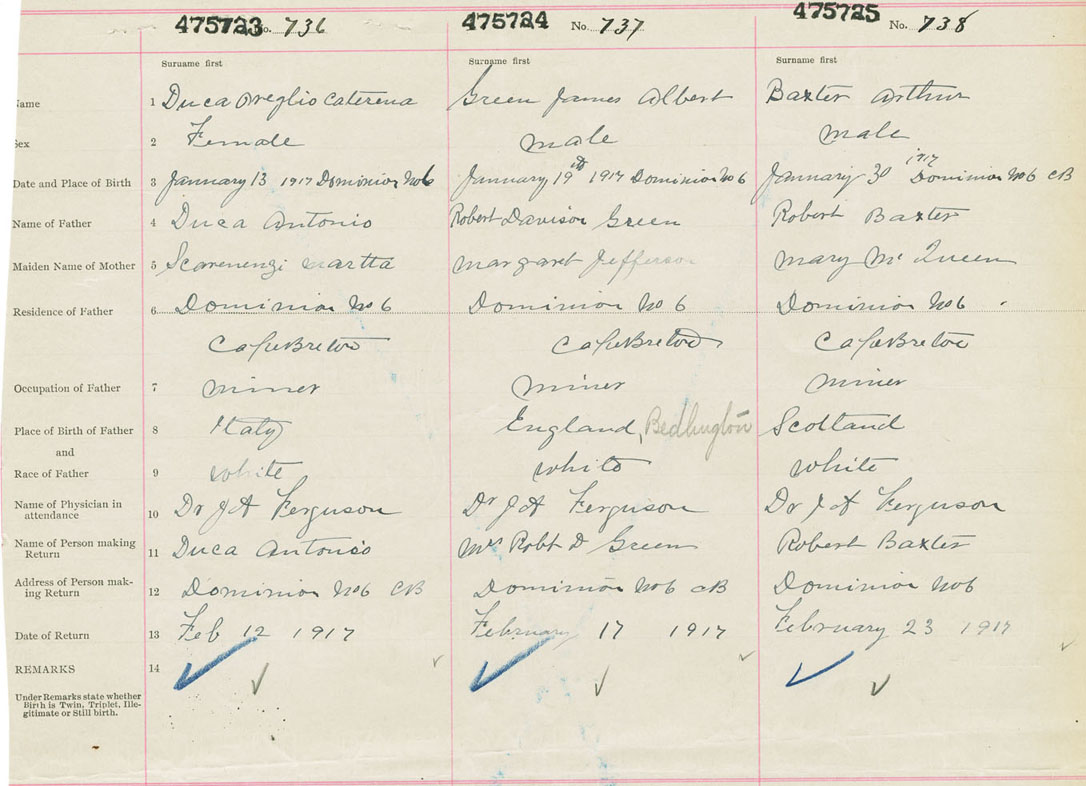 475723 No. 736 475724 No. 737 475725 No. 738
Surname first Surname first Surname first
Name 1 Duca Caterena Green James Albert Baxter Arthur
Sex 2 Female male male
Date and Place of Birth 3 January 13 1917 Dominion No 6 January 19th 1917 Dominion No 6 January 30 1917 Dominion No 6 CB
Name of Father 4 Duca Antonio Robert Davison Green Robert Baxter
Maiden Name of Mother 5 Martta Margaret Jefferson Mary Mc Queen
Residence of Father 6 Dominion No 6 Dominion No 6 Dominion No 6
Cape Breton Cape Breton Cape Breton
Occupation of Father 7 miner miner miner
Place of Birth of Father 8 Italy England, Bedlington Scotland
and
Race of Father 9 white white white
Name of Physician in
attendance 10 Dr J A Ferguson Dr J A Ferguson Dr J A Ferguson
Name of Person making
Return 11 Duca Antonio Mrs Robt D Green Robert Baxter
Address of Person mak-
ing Return 12 Dominion No 6 CB Dominion No 6 CB Dominion No 6
Date of Return 13 Feb 12 1917 February 17 1917 February 23 1917
REMARKS 14
Under Remarks state whether
Birth is Twin, Triplet, Ille-
gitimate or Still birth.